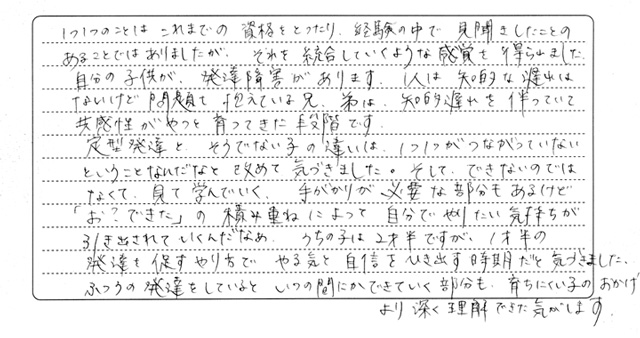 1つ1つのことは これまでの 資格をとったり、経験の中で 見聞きしたことの
あることではありましたが、それを 統合していくような 感覚を 得られました。
自分の子供が、発達障害があります。1人は 知的な遅れは
ないけど 問題で 抱えている兄、弟は、知的遅れを 伴っていて
共感性がやっと育ってきた段階です。
定型発達と そうでない子の違いは、1つ1つがつながっていない
ということなんだなと 改めて 気づきました。そして、できないのでは
なくて、見て学んでいく、手がかりが 必要な部分もあるけど
「お?できた」の 積み重ねによって 自分で やりたい 気持ちが
引き出されて いくんだなぁ。 うちの子は 2才半ですが、1才半の
発達を 促す やり方で やる気と 自信を ひき出す 時期だと 気づきました。
ふつうの 発達をしていると いつの間にかできていく 部分も、育ちにくい子の おかげ
より 深く 理解できた気がします。